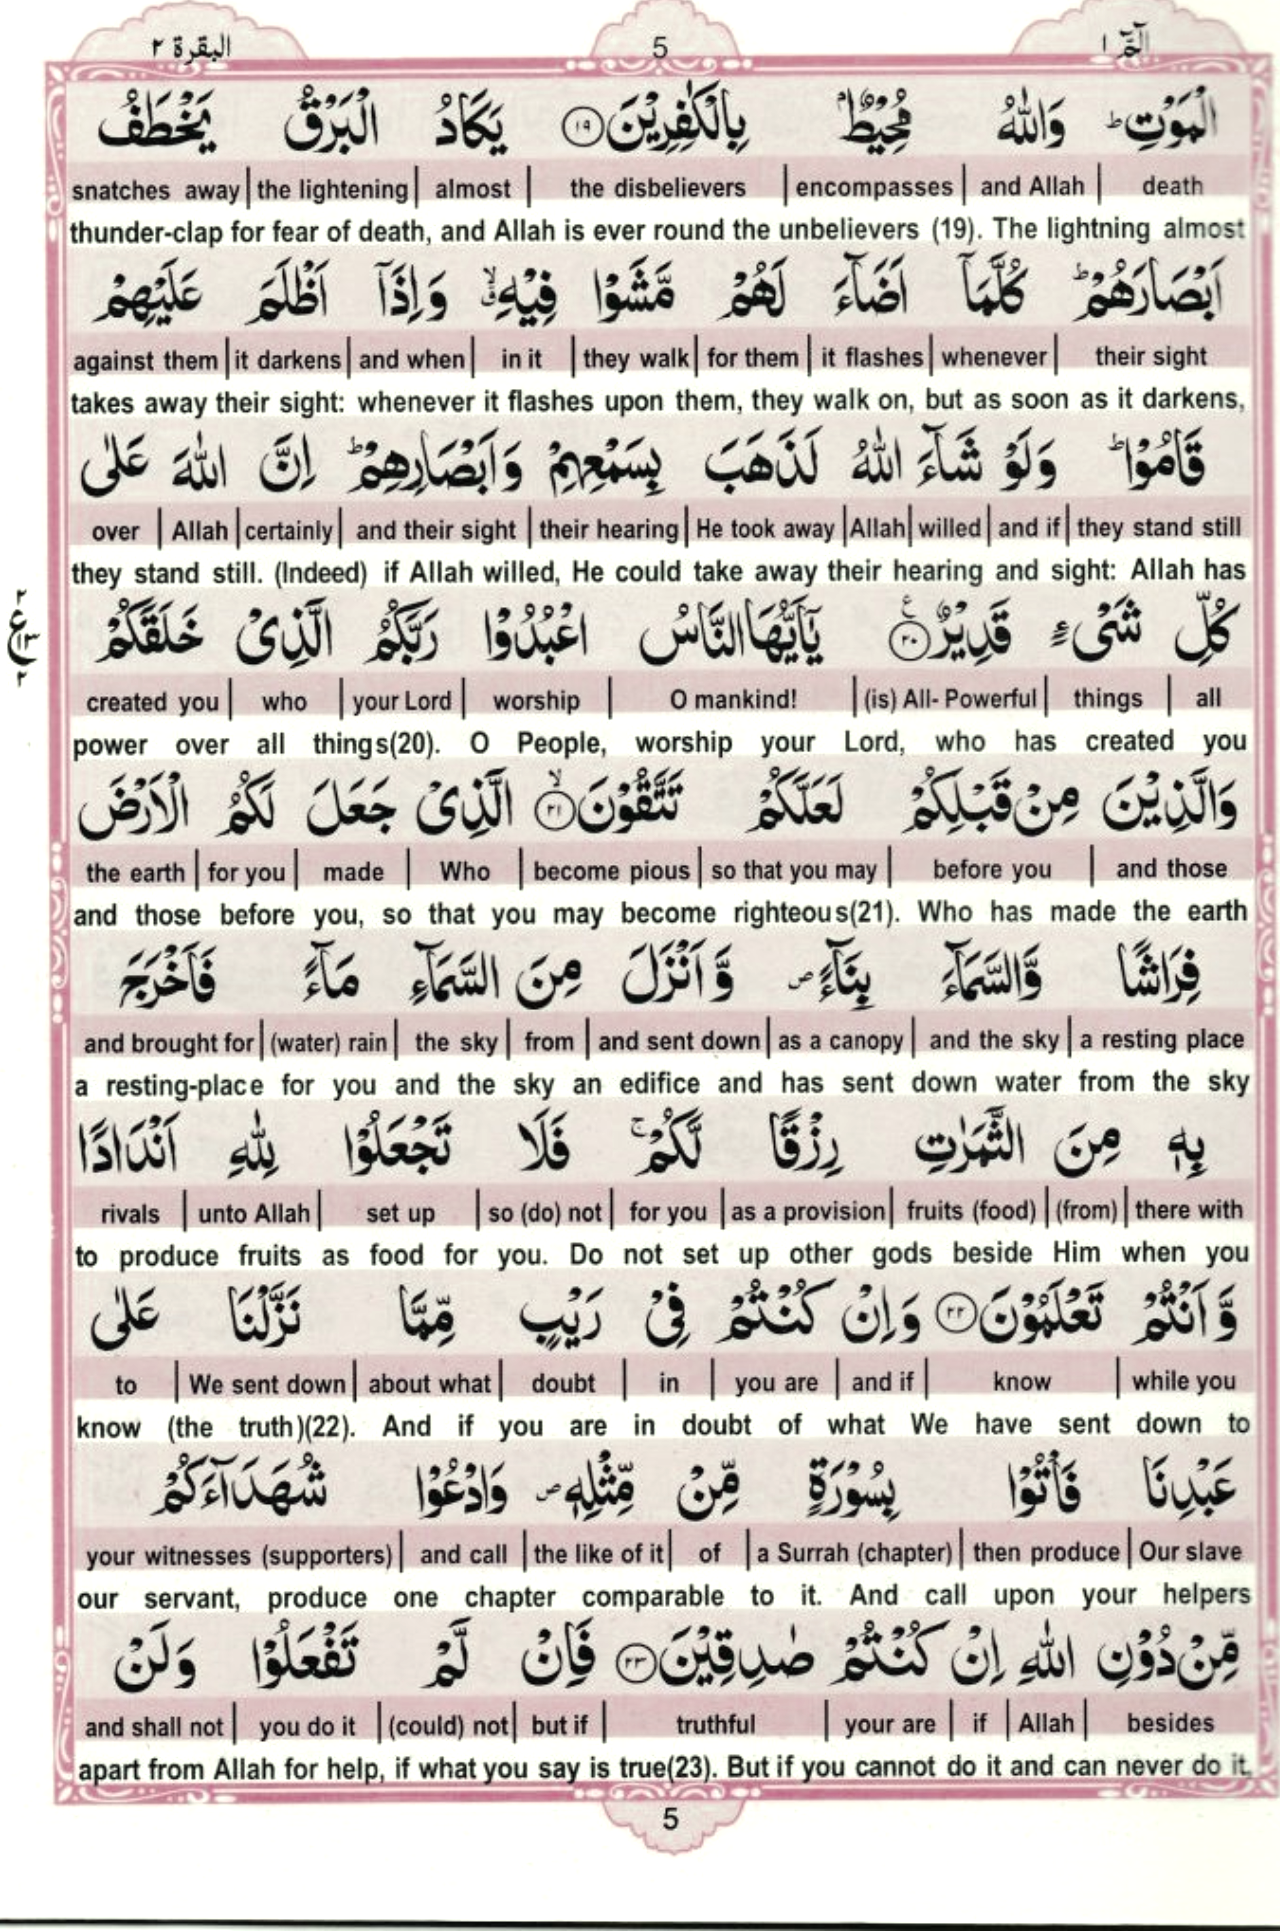 البقرة ٢
5
الٓمّٓ ١
الْمَوْتِ ؕ وَاللّٰهُ مُحِيْطٌۢ بِالْكٰفِرِيْنَ ۝۱۹ يَكَادُ الْبَرْقُ يَخْطَفُ
snatches away | the lightening | almost | the disbelievers | encompasses | and Allah | death
thunder-clap for fear of death, and Allah is ever round the unbelievers (19). The lightning almost
اَبْصَارَهُمْ ؕ كُلَّمَاۤ اَضَآءَ لَهُمْ مَّشَوْا فِيْهِ ۙۗ وَاِذَاۤ اَظْلَمَ عَلَيْهِمْ
against them | it darkens | and when | in it | they walk | for them | it flashes | whenever | their sight
takes away their sight: whenever it flashes upon them, they walk on, but as soon as it darkens,
قَامُوْا ؕ وَلَوْ شَآءَ اللّٰهُ لَذَهَبَ بِسَمْعِهِمْ وَاَبْصَارِهِمْ ؕ اِنَّ اللّٰهَ عَلٰى
over | Allah | certainly | and their sight | their hearing | He took away | Allah | willed | and if | they stand still
they stand still. (Indeed) if Allah willed, He could take away their hearing and sight: Allah has
كُلِّ شَىْءٍ قَدِيْرٌ ۝۲۰ۧ يٰۤاَيُّهَا النَّاسُ اعْبُدُوْا رَبَّكُمُ الَّذِىْ خَلَقَكُمْ
٢
ع ١٣
٢
created you | who | your Lord | worship | O mankind! | (is) All- Powerful | things | all
power over all things(20). O People, worship your Lord, who has created you
وَالَّذِيْنَ مِنْ قَبْلِكُمْ لَعَلَّكُمْ تَتَّقُوْنَ ۝۲۱ۙ الَّذِىْ جَعَلَ لَكُمُ الْاَرْضَ
the earth | for you | made | Who | become pious | so that you may | before you | and those
and those before you, so that you may become righteous(21). Who has made the earth
فِرَاشًا وَّالسَّمَآءَ بِنَآءً ۪ وَّاَنْزَلَ مِنَ السَّمَآءِ مَآءً فَاَخْرَجَ
and brought for | (water) rain | the sky | from | and sent down | as a canopy | and the sky | a resting place
a resting-place for you and the sky an edifice and has sent down water from the sky
بِهٖ مِنَ الثَّمَرٰتِ رِزْقًا لَّكُمْ ۚ فَلَا تَجْعَلُوْا لِلّٰهِ اَنْدَادًا
rivals | unto Allah | set up | so (do) not | for you | as a provision | fruits (food) | (from) | there with
to produce fruits as food for you. Do not set up other gods beside Him when you
وَّاَنْتُمْ تَعْلَمُوْنَ ۝۲۲ وَاِنْ كُنْتُمْ فِىْ رَيْبٍ مِّمَّا نَزَّلْنَا عَلٰى
to | We sent down | about what | doubt | in | you are | and if | know | while you
know (the truth)(22). And if you are in doubt of what We have sent down to
عَبْدِنَا فَاْتُوْا بِسُوْرَةٍ مِّنْ مِّثْلِهٖ ۪ وَادْعُوْا شُهَدَآءَكُمْ
your witnesses (supporters) | and call | the like of it | of | a Surrah (chapter) | then produce | Our slave
our servant, produce one chapter comparable to it. And call upon your helpers
مِّنْ دُوْنِ اللّٰهِ اِنْ كُنْتُمْ صٰدِقِيْنَ ۝۲۳ فَاِنْ لَّمْ تَفْعَلُوْا وَلَنْ
and shall not | you do it | (could) not | but if | truthful | your are | if | Allah | besides
apart from Allah for help, if what you say is true(23). But if you cannot do it and can never do it,
5